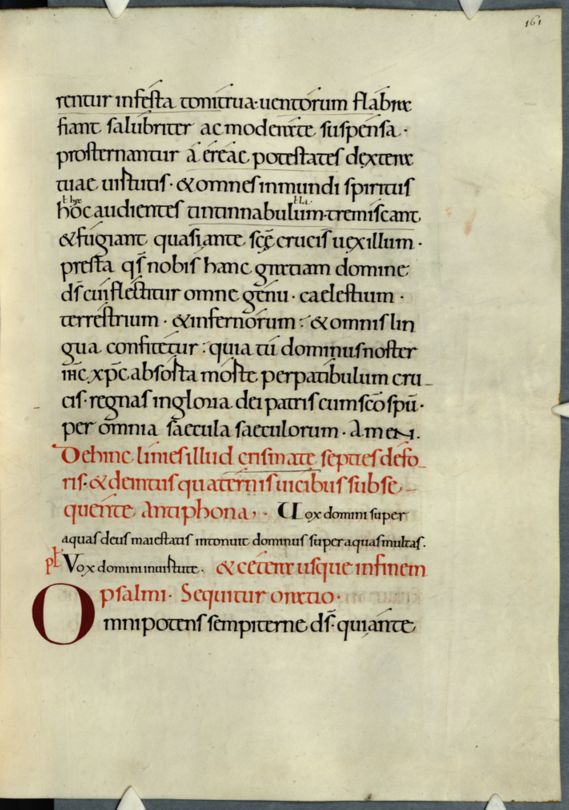 161
rentur infesta tonitrua·uentorum flabra
fiant salubriter ac moderate suspensa·
prosternantur a ereae potestates dextera
tuae uirtutis·&omnes inmundi spiritus
hoc audientes tintinnabulum·tremiscant
&fugiant quasi ante scē crucis uexillum·
presta qs nobis hanc gratiam domine
ds cui flectitur omne genu·caelestium·
terrestrium·&infernorum:&omnis lin
gua confitetur:quia tu dominus noster
ihc xpc absorta morte per patibulum cru-
cis·regnas in gloria dei patris cum sco spu·
per omnia saecula saeculorum·Amen.
Dehinc lines illud crismate septies defo-
ris·&deintus quaternis uicibus subse-
quente Antiphona· Uox domini super
aquas deus maiestatis intonuit dominus super aquas multas.
ps Vox domini in uirtute. &cetera usque in finem
psalmi· Sequitur oratio·
Omnipotens sempiterne ds·qui ante